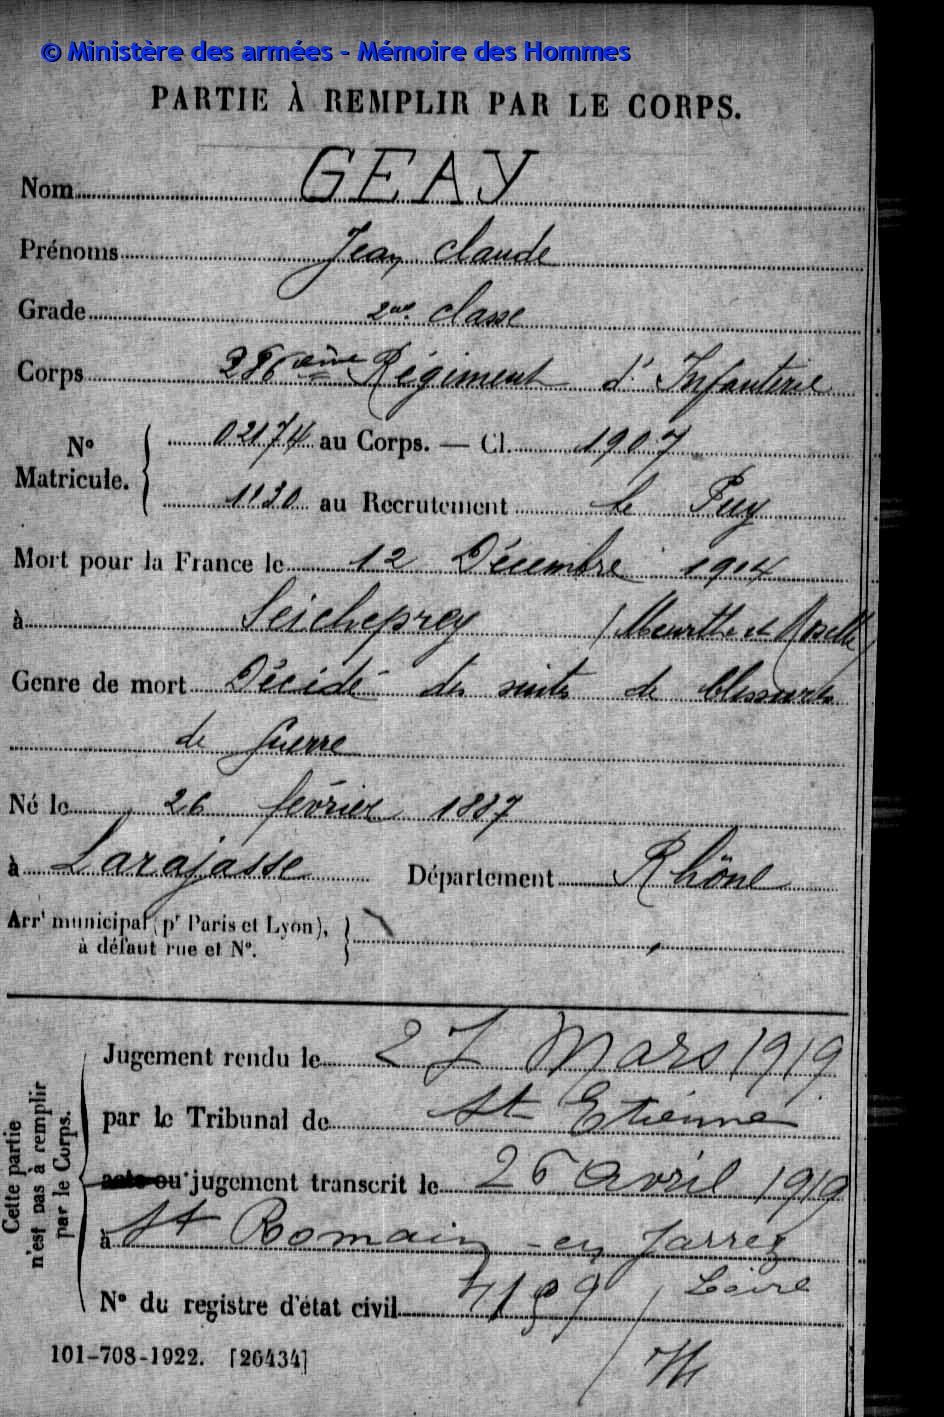 © Ministère des armées - Mémoire des Hommes
PARTIE À REMPLIR PAR LE CORPS.
Nom GEAY
Prénoms Jean Claude
Grade 2me classe
Corps 286ème Régiment d'Infanterie
No 02174 au Corps. — Cl. 1907
Matricule. 1130 au Recrutement le Puy
Mort pour la France le 12 Décembre 1914
à Seicheprey (Meurthe et Moselle)
Genre de mort Décidé des suites de blessures
de guerre
Né le 26 février 1887
à Larajasse Département Rhône
Arrt municipal (pr Paris et Lyon),
à défaut rue et No.
Cette partie n'est pas à remplir par le Corps.
Jugement rendu le 27 Mars 1919
par le Tribunal de St Etienne
acte ou jugement transcrit le 26 Avril 1919
à St Romain-en Jarrez
Loire
No du registre d'état civil
101-708-1922. [26434]